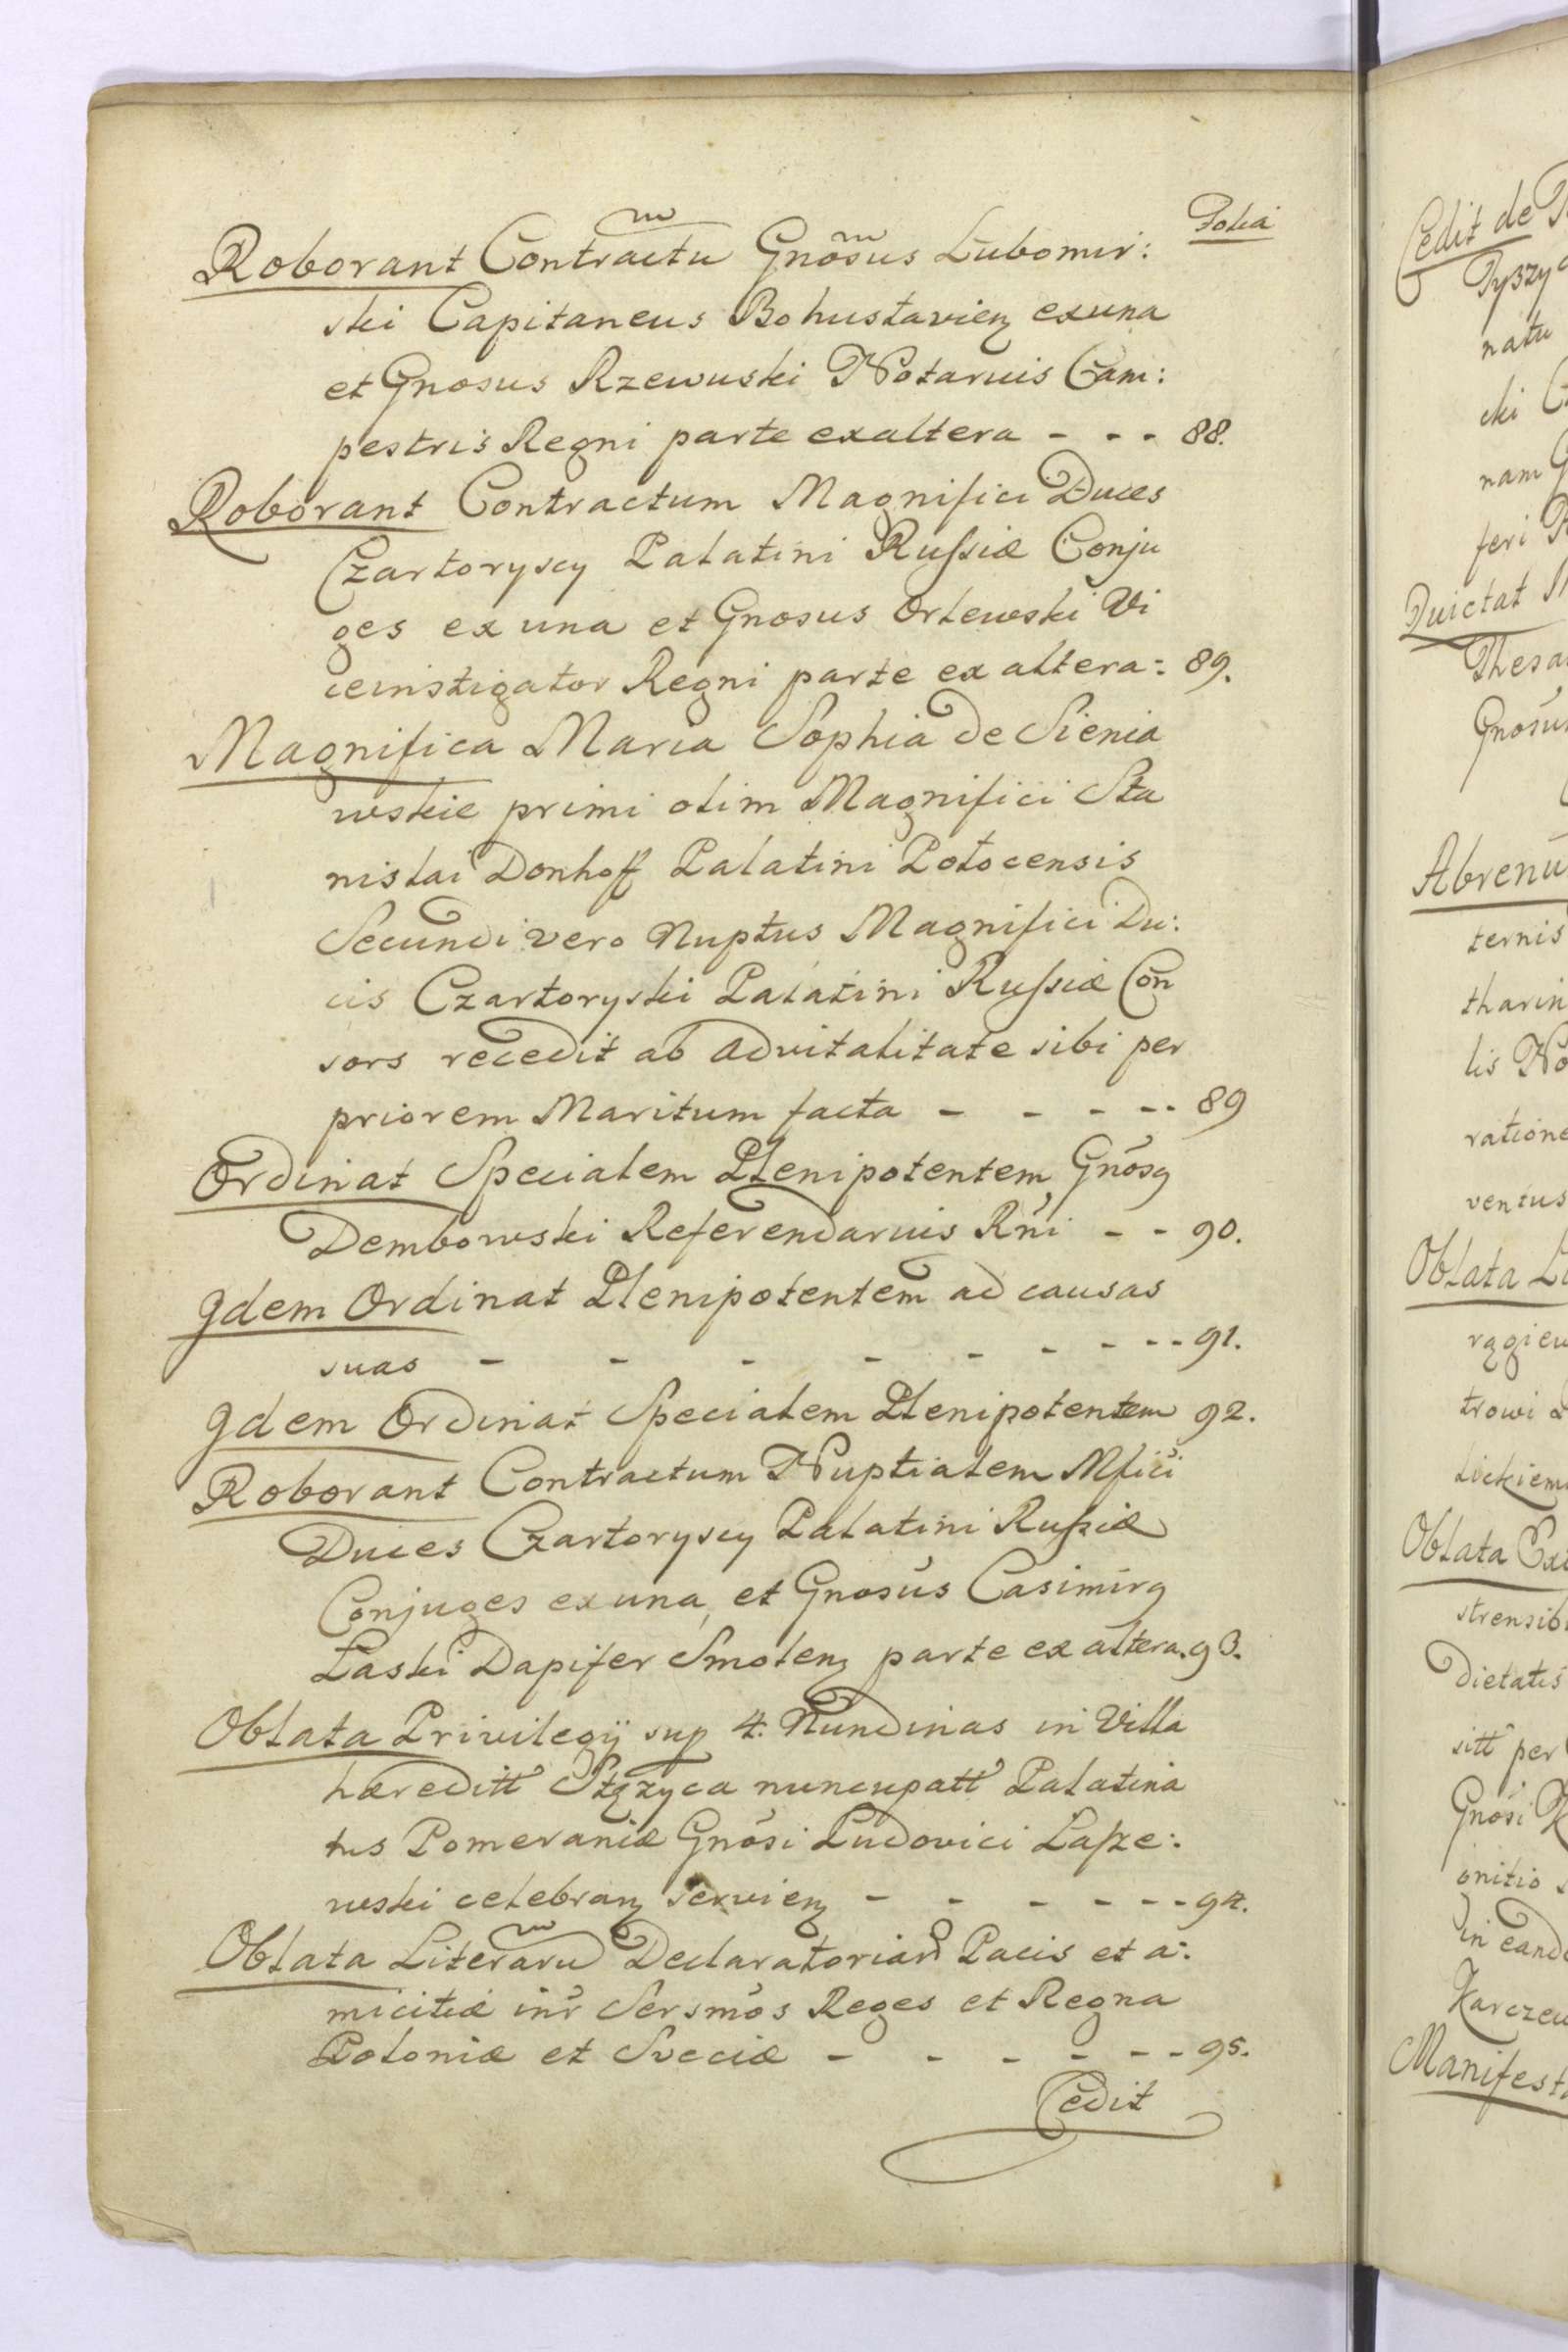 Folia
Roborant Contractu Gnosus Lubomir:
ski Capitaneus Bohuslavien exuna
et Gnosus Rzewuski Notarius Cam:
pestris Regni parte exaltera - - - 88.
Roborant Contractum Magnifici Duces
Czartoryscy Palatini Russiæ Conju
ges ex una et Gnosus Orlewski Vi
ceinstigator Regni parte ex altera: 89.
Magnifica Maria Sophia de Sienia
wskie primi olim Magnifici Sta
nislai Donhoff Palatini Polocensis
Secundi vero Nuptus Magnifici Du:
cis Czartoryski Palatini Russiæ Con
sors recedit ab advitalitate sibi per
priorem Maritum facta - - - - - 89
Ordinat Specialem Plenipotentem Gnosq
Dembowski Referendarius Rni - - 90.
Jdem Ordinat Plenipotentem ad causas
suas - - - - - - - - - 91.
Jdem Ordinat Specialem Plenipotentem 92.
Roborant Contractum Nuptialem Mfici
Duces Czartoryscy Palatini Russiæ
Conjuges ex una, et Gnosus Casimirq
Laski Dapifer Smolen parte ex altera. 93.
Oblata Privilegij sup 4. Nundinas in Villa
hæreditt Stężyca nuncupatt Palatina
tus Pomeraniæ Gnosi Ludovici Łasze:
wski celebran servien - - - - - - - 94.
Oblata Literaru Declaratoriar Pacis et a:
micitiæ inr Sersmos Reges et Regna
Poloniæ et Sveciæ - - - - - - 95.
Cedit
Cedit de
natu
cki
nam
feri
Quietat
Thesa
Gnosus
Abrenu
ternis
tharin
lis No
ratione
ventus
Oblata Li
rągiew
trowi
lickiem
Oblata Ex
strensib
Dietatis
sitt per
Gnosi
onitio
in eand
Karczew
Manifest